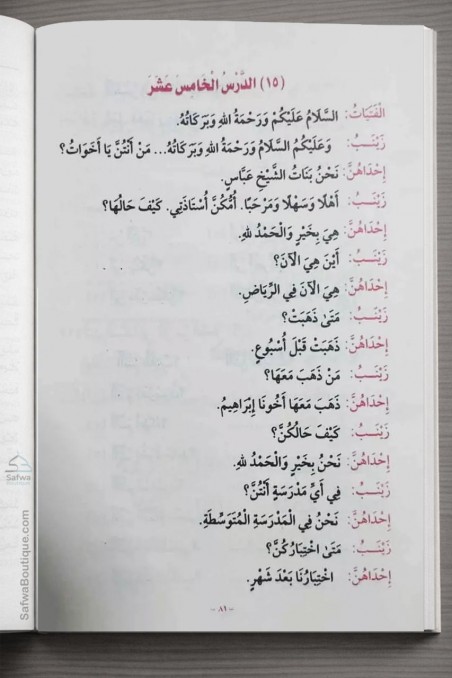 (١٥) الدَّرْسُ الْخَامِسَ عَشَرَ
الْفَتَيَاتُ: السَّلَامُ عَلَيْكُمْ وَرَحْمَةُ اللهِ وَبَرَكَاتُهُ.
زَيْنَـبُ: وَعَلَيْكُمُ السَّلَامُ وَرَحْمَةُ اللهِ وَبَرَكَاتُهُ... مَنْ أَنْتُنَّ يَا أَخَوَاتُ؟
إِحْدَاهُنَّ: نَحْنُ بَنَاتُ الشَّيْخِ عَبَّاسٍ.
زَيْنَـبُ: أَهْلًا وَسَهْلًا وَمَرْحَبًا. أُمُّكُنَّ أُسْتَاذَتِي. كَيْفَ حَالُهَا؟
إِحْدَاهُنَّ: هِيَ بِخَيْرٍ وَالْحَمْدُ لِلهِ.
زَيْنَـبُ: أَيْنَ هِيَ الْآنَ؟
إِحْدَاهُنَّ: هِيَ الْآنَ فِي الرِّيَاضِ.
زَيْنَـبُ: مَتَى ذَهَبَتْ؟
إِحْدَاهُنَّ: ذَهَبَتْ قَبْلَ أُسْبُوعٍ.
زَيْنَـبُ: مَنْ ذَهَبَ مَعَهَا؟
إِحْدَاهُنَّ: ذَهَبَ مَعَهَا أَخُونَا إِبْرَاهِيمُ.
زَيْنَـبُ: كَيْفَ حَالُكُنَّ؟
إِحْدَاهُنَّ: نَحْنُ بِخَيْرٍ وَالْحَمْدُ لِلهِ.
زَيْنَـبُ: فِي أَيِّ مَدْرَسَةٍ أَنْتُنَّ؟
إِحْدَاهُنَّ: نَحْنُ فِي الْمَدْرَسَةِ الْمُتَوَسِّطَةِ.
زَيْنَـبُ: مَتَى اخْتِبَارُكُنَّ؟
إِحْدَاهُنَّ: اخْتِبَارُنَا بَعْدَ شَهْرٍ.
- ٨١ -
Safwa
SafwaBoutique.com